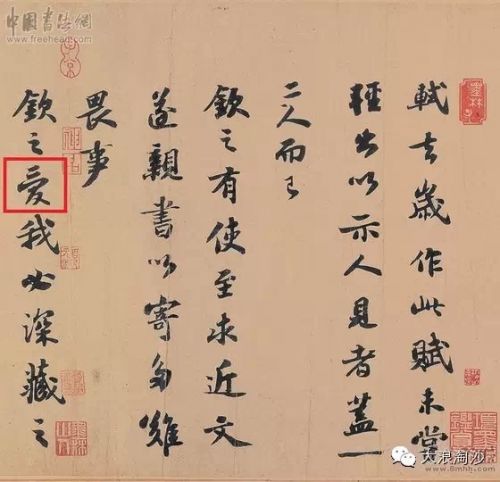 軾去歲作此賦未嘗
輕出以示人見者蓋一
二人而已
欽之有使至求近文
遂親書以寄多難
畏事
欽之愛我必深藏之
中國書法網
www.freehead.com
大浪淘沙